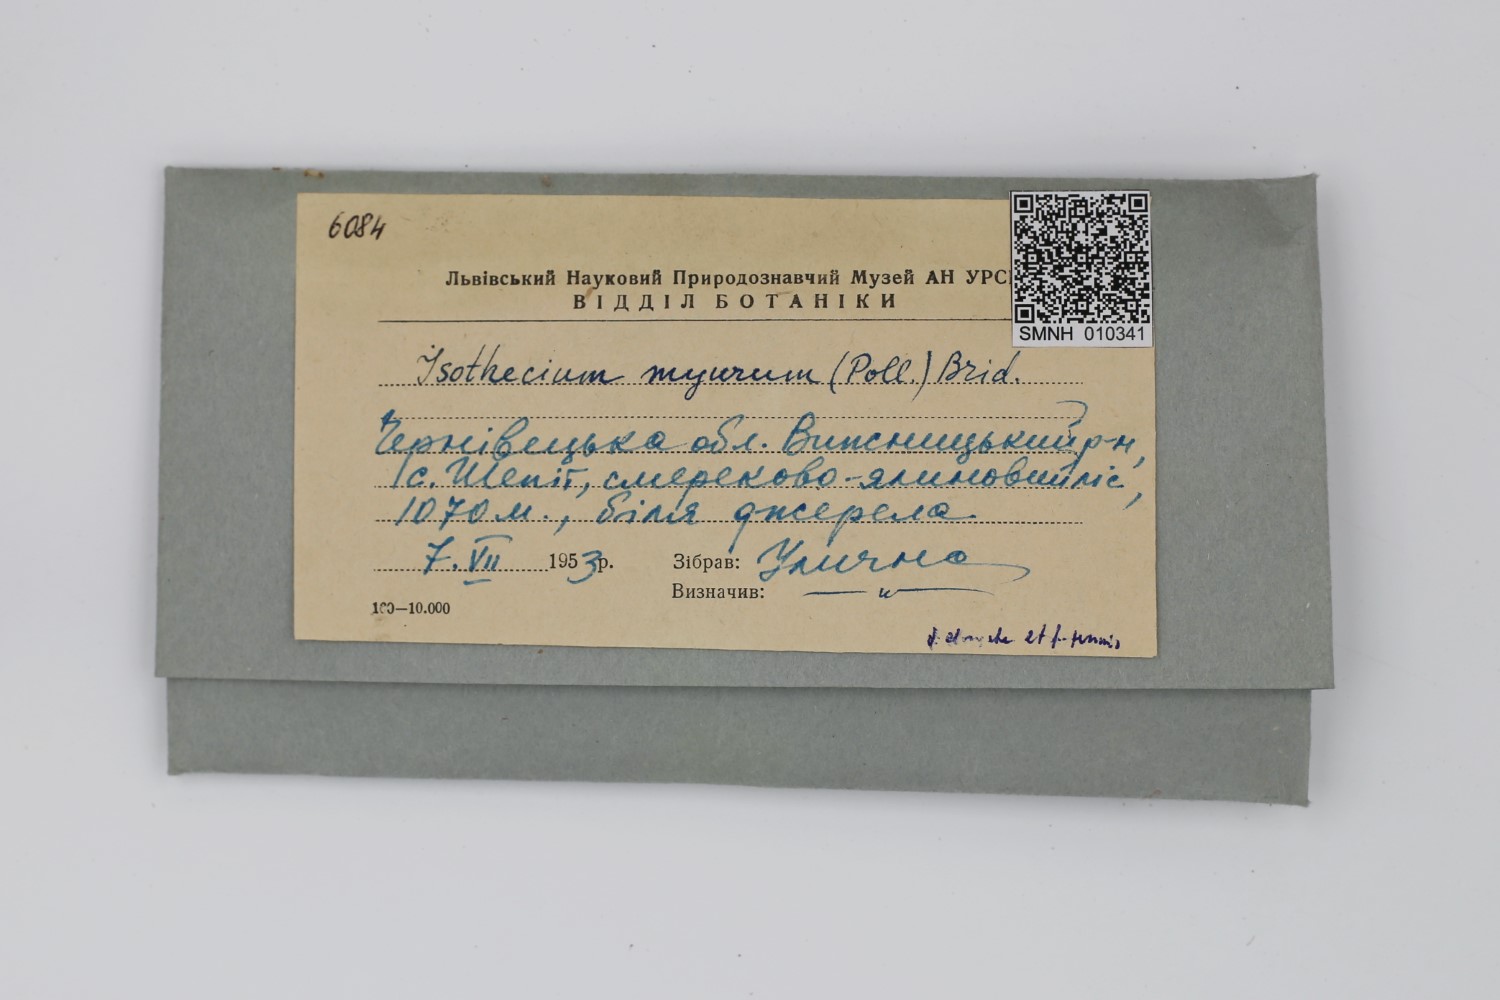 6084
Львівський Науковий Природознавчий Музей АН УРС
ВІДДІЛ БОТАНІКИ
SMNH 010341
Isothecium myurum (Poll.) Brid.
Чернівецька обл. Вижницький р-н,
с. Шепіт, смереково-ялиновий ліс,
1070 м., біля джерела
7. VII 1953 р. Зібрав: Улична
Визначив: — " —
100—10.000
et f.